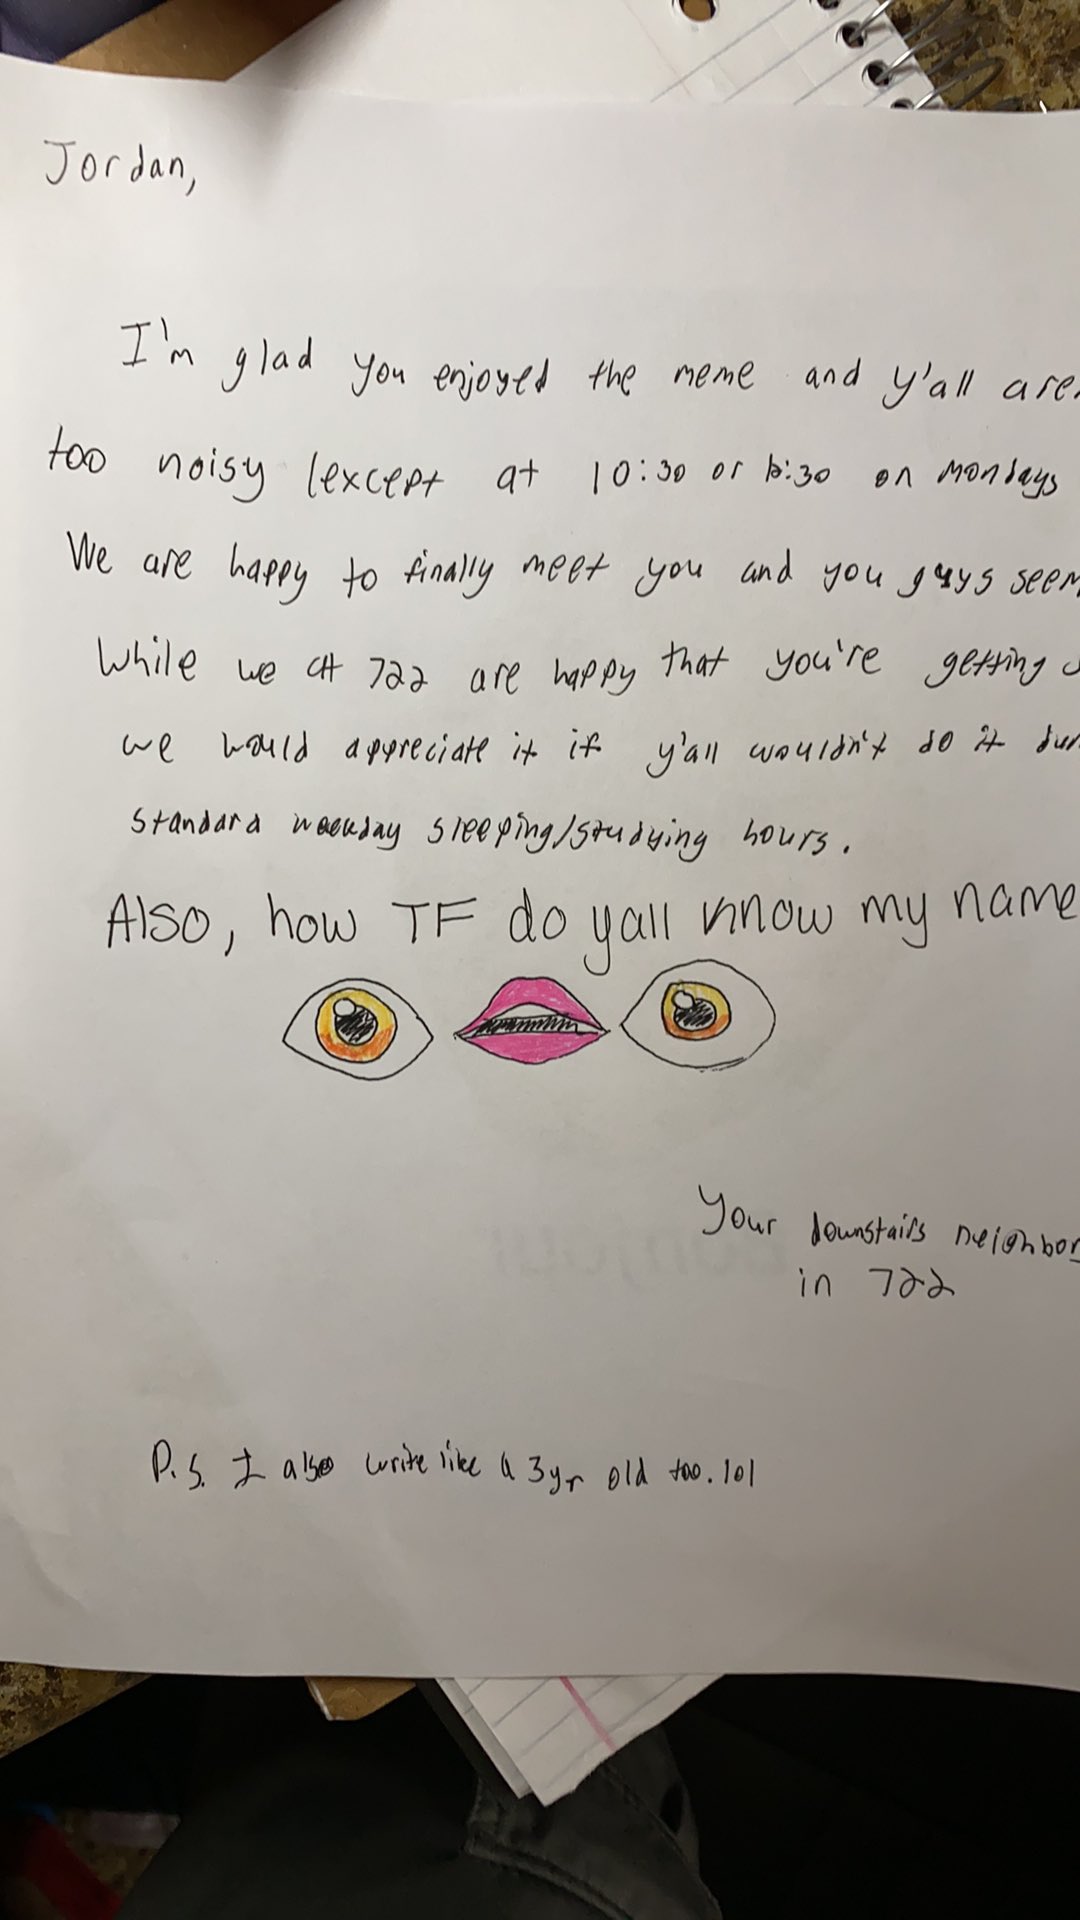 Jordan,
I'm glad you enjoyed the meme and y'all aren
too noisy (except at 10:30 or 12:30 on Mondays
We are happy to finally meet you and you guys seem
While we at 722 are happy that you're getting
we would appreciate it if y'all wouldn't do it dur
standard weekday sleeping/studying hours.
Also, how TF do yall know my name
Your downstairs neighbor
in 722
P.S. I also write like a 3yr old too. lol